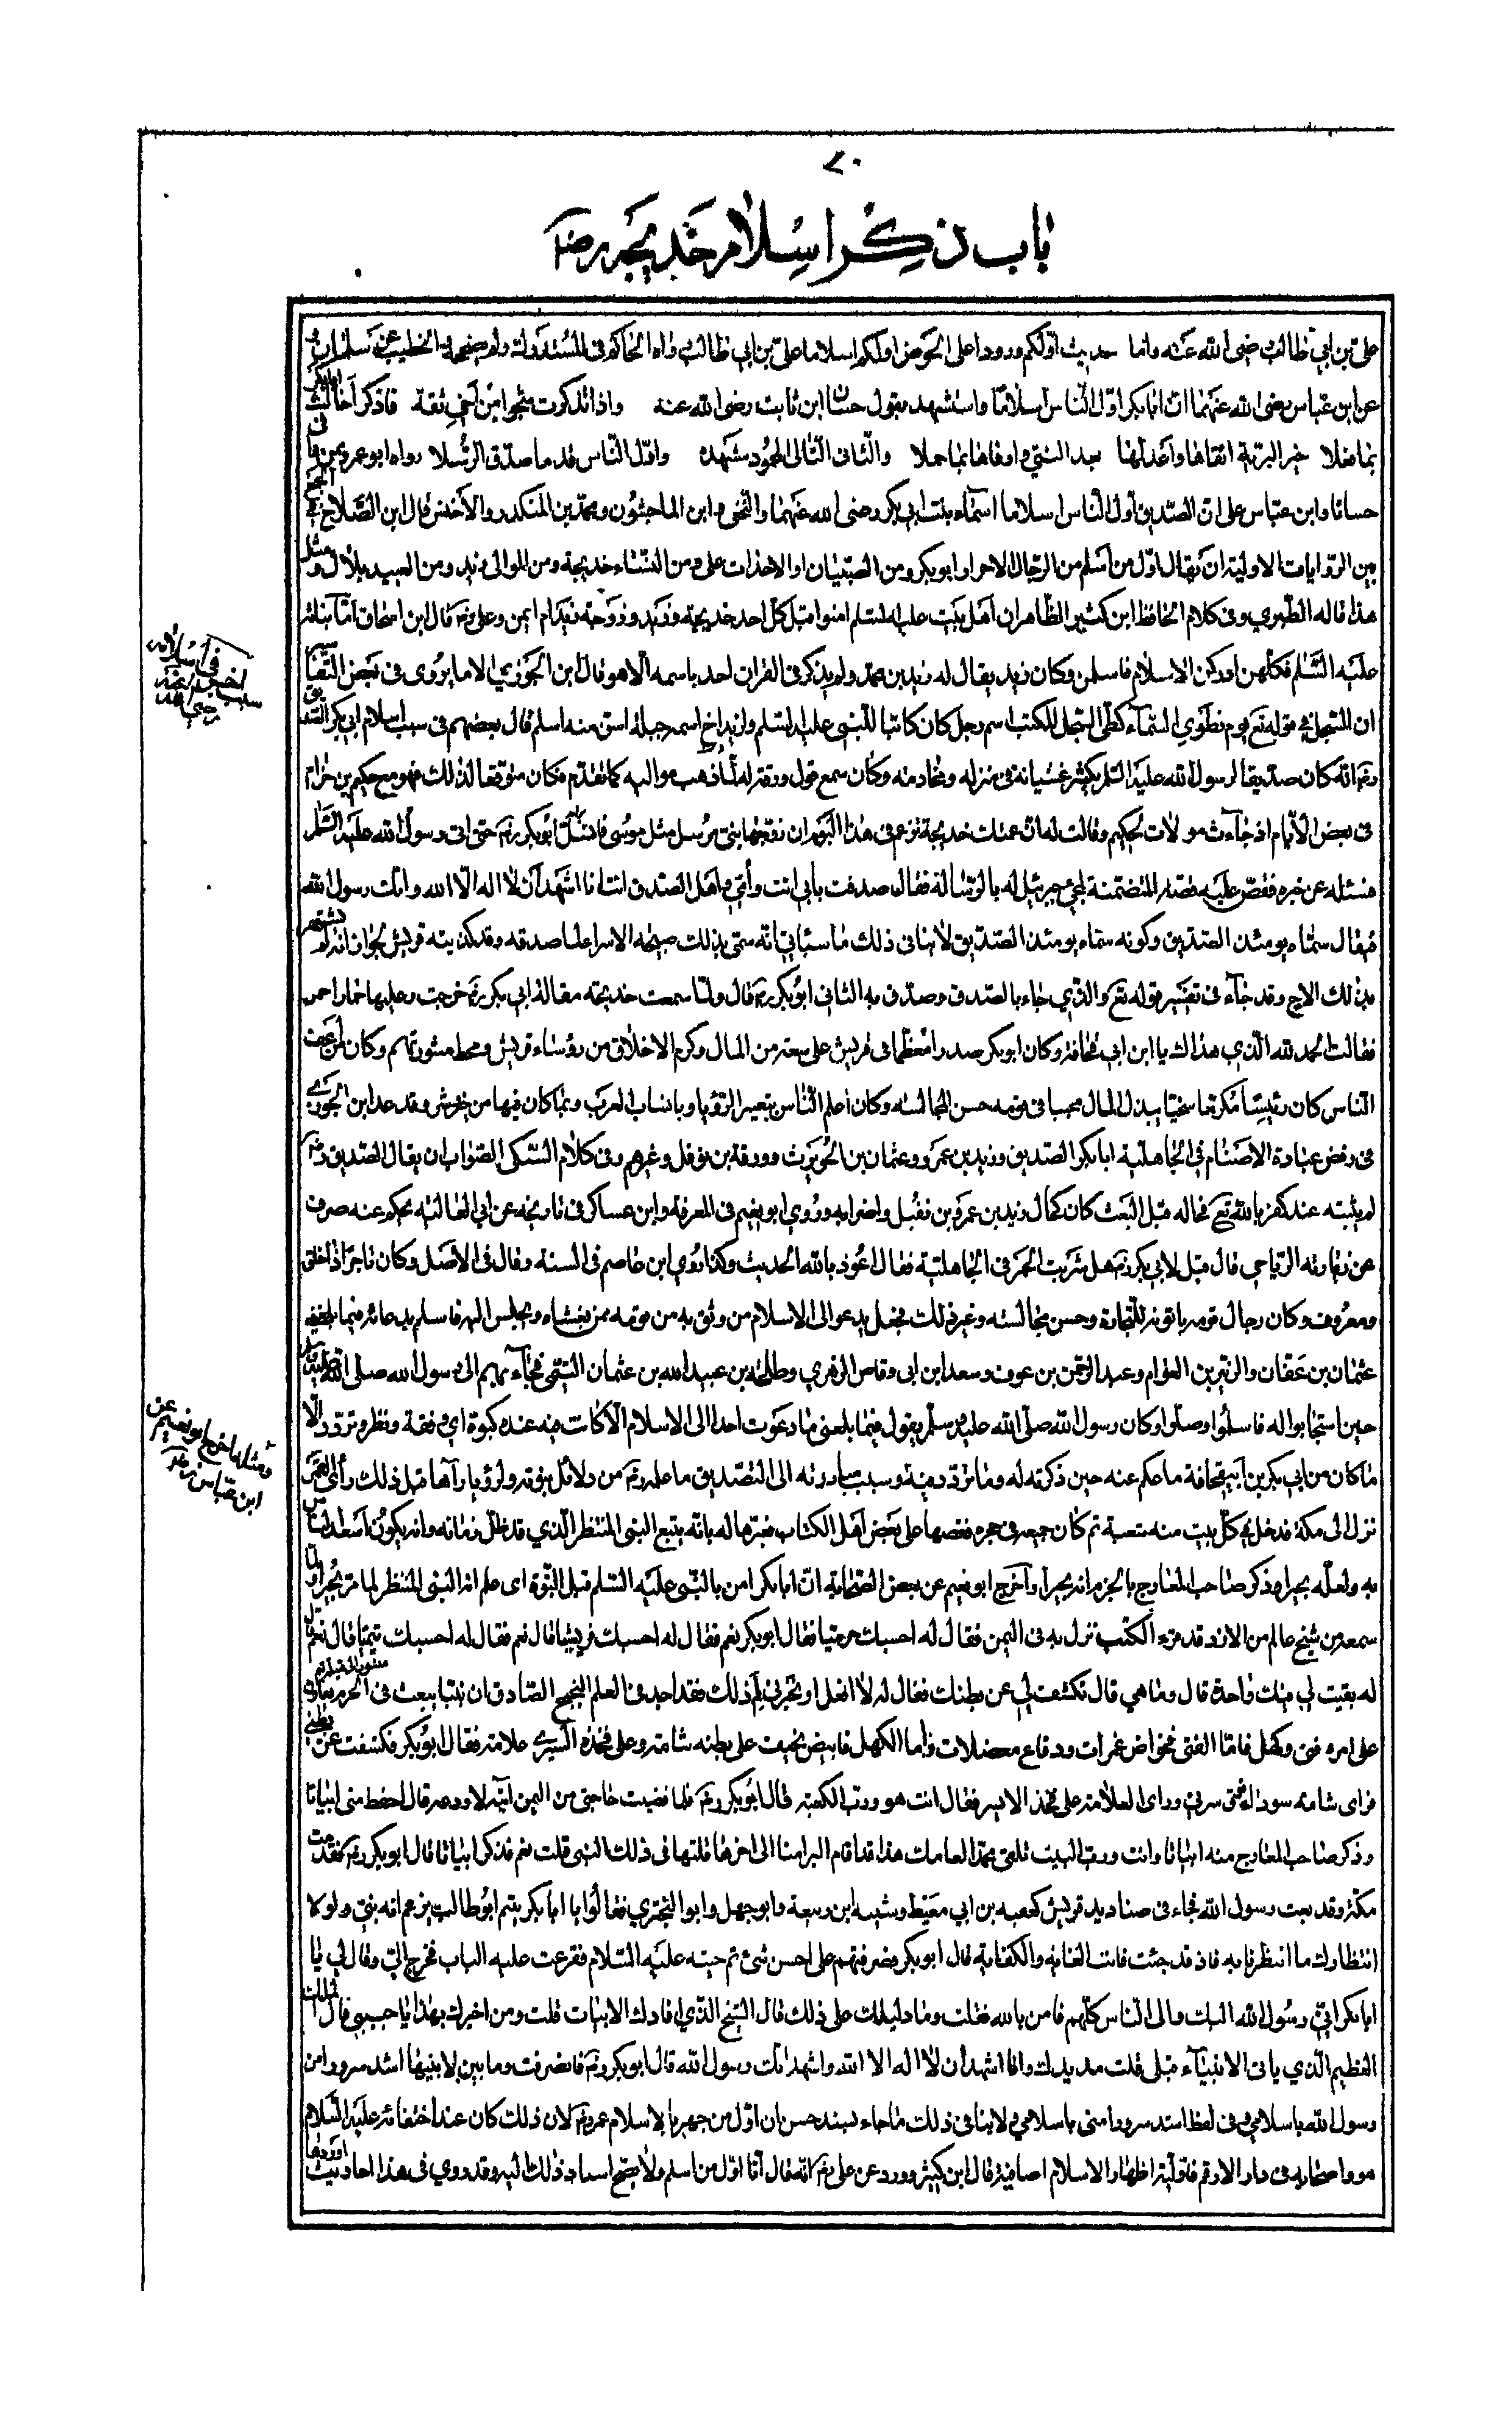 ٧٠
باب ذكر اسلام خديجة رضي
علي بن ابي طالب رضي الله عنه واما حديث اولكم ورودا على الحوض اولكم اسلاما علي بن ابي طالب رواه الحاكم في المستدرك ولم يصححه والخطيب عن سلمان
عن ابن عباس رضي الله عنهما ان ابابكر اول الناس اسلاما واستشهد بقول حسان ابن ثابت رضي الله عنه واذا تذكرت شجوا من اخي ثقة فاذكر اخاك ابابكر
بما فعلا خير البرية اتقاها واعدلها بعد النبي واوفاها بما حملا والثاني التالي المحمود مشهده واول الناس قدما صدق الرسلا رواه ابو عمر
حسانا وابن عباس على ان الصديق اول الناس اسلاما اسماء بنت ابي بكر رضي الله عنهما والنخعي وابن الماجشون ومحمد بن المنكدر والاخنس قال ابن الصلاح
بين الروايات الاولية ان يقال اول من اسلم من الرجال الاحرار ابو بكر ومن الصبيان او الاحداث علي ومن النساء خديجة ومن الموالي زيد ومن العبيد بلال ومثل
هذا قاله الطبري وفي كلام الحافظ ابن كثير الظاهر ان اهل بيت عليه السلم امنوا قبل كل احد خديجة وزيد وزوجة زيد ام ايمن وعلي رض قال ابن اسحاق اما بناته
عليه السلم فكلهن ادركن الاسلام فاسلمن وكان زيد يقال له زيد بن محمد ولم يذكر في القران احد باسمه الا هو قال ابن الجوزي الا ما يروى في بعض التفاسير
ان السجل في قوله تع يوم نطوي السماء كطي السجل للكتب اسم رجل كان كاتبا للنبي عليه السلم ولزيد اخ اسمه جبلة اسن منه اسلم قال بعضهم في سبب اسلام ابي بكر الصديق
رض انه كان صديقا لرسول الله عليه السلم يكثر غشيانه في منزله ومحادثته وكان سمع قول ورقة له لما ذهب مع اليه كما تقدم فكان متوقعا لذلك فهو مع حكيم بن حزام
في بعض الايام اذ جاءت مولات لحكيم وقالت له ان عمتك خديجة تزعم في هذا اليوم ان زوجها نبي مرسل مثل موسى فانسل ابو بكر رض حتى اتى رسول الله عليه السلم
فسئله عن خبره فقص عليه قصته المتضمنة لمجيء جبرئيل له بالرسالة فقال صدقت بابي انت وامي واهل الصدق انت انا اشهد ان لا اله الا الله وانك رسول الله
فيقال سماه يومئذ الصديق وكونه سماه يومئذ الصديق لا ينافي ذلك ما سياتي انه سمي بذلك صبيحة الاسرا لما صدقه وقد كذبته قريش لجواز انه لم يشتهر
بذلك الا ح وقد جاء في تفسير قوله تع والذي جاء بالصدق وصدق به الثاني ابو بكر رض قال ولما سمعت خديجة مقالة ابي بكر رض خرجت وعليها خمار احمر
فقالت الحمد لله الذي هداك يا ابن ابي قحافة وكان ابو بكر صدرا معظما في قريش على سعة من المال وكرم الاخلاق من رؤساء قريش ومحط مشورتهم وكان من اعف
الناس كان رئيسا مكرما سخيا يبذل المال محببا في قومه حسن المجالسة وكان اعلم الناس بتعبير الرؤيا وبانساب العرب وبما كان فيها من خير وشر وقد عد ابن الجوزي
فى رفض عبادة الاصنام في الجاهلية ابا بكر الصديق وزيد بن عمرو وعثمان بن الحويرث وورقة بن نوفل وغيرهم وفي كلام السبكي الصواب ان يقال الصديق رض
لم يثبت عند كفر بالله تع فحاله قبل البعث كان كحال زيد بن عمرو بن نفيل واضرابه وروى ابو نعيم في المعرفة وابن عساكر في تاريخه عن ابي العالية
الرياحي قال قيل لابي بكر رض هل شربت الخمر في الجاهلية فقال اعوذ بالله الحديث وكذا روى ابن عاصم في السنة وقال في الاصل وكان تاجرا ذا خلق
ومعروف وكان رجال قومه ياتونه للتجارة وحسن مجالسته وغير ذلك فجعل يدعو الى الاسلام من وثق به من قومه ممن يغشاه ويجلس اليه فاسلم بدعائه فيما بلغني
عثمان بن عفان والزبير بن العوام وعبد الرحمن بن عوف وسعد ابن ابي وقاص الزهري وطلحة بن عبيد الله بن عثمان التيمي فجاء بهم الى رسول الله صلى الله عليه وسلم
حين استجابوا له فاسلموا وصلوا وكان رسول الله صلى الله عليه وسلم يقول فيما بلغني ما دعوت احدا الى الاسلام الا كانت فيه عنده كبوة اي وقفة ونظر وتردد الا
ما كان من ابي بكر بن ابي قحافة ما عكم عنه حين ذكرته له وما تردد فيه وسبب مبادرته الى التصديق ما علمه رض من دلائل نبوته ولرؤيا رآها قبل ذلك رأى القمر
نزل الى مكة فدخل في كل بيت منه شعبة ثم كان جميعه في حجره فقصها على بعض اهل الكتاب فعبرها له بانه يتبع النبي المنتظر الذي قد ظل زمانه وانه يكون اسعد الناس
به ولعله بحيرا وذكر صاحب المعارج بالجزم انه بحيرا واخرج ابو نعيم عن بعض الصحابة ان ابابكر امن بالنبي عليه السلم قبل النبوة اى علم انه النبي المنتظر
سمعه من شيخ عالم من الازد قد قرء الكتب نزل به في اليمن فقال له احسبك حرميا فقال ابو بكر نعم فقال له احسبك قريشيا قال نعم فقال له احسبك تيميا قال نعم
له بقيت لي منك واحدة قال وما هي قال تكشف لي عن بطنك فقال له لا افعل او تخبرني لم ذلك فقد اجد في العلم النجيح الصادق ان نبيا يبعث في الحرم يعاون
على امره فتى وكهل فاما الفتى فخواض غمرات ودفاع معضلات واما الكهل فابيض نحيف على بطنه شامة وعلى فخذه اليسرى علامة فقال ابو بكر فكشفت عن بطني
فراى شامة سوداء فوق سرتي وراى العلامة على فخذ الايسر فقال انت هو ورب الكعبة قال ابو بكر رض فلما قضيت حاجتي من اليمن اتيته لاودعه قال احفظ مني ابياتا
مكة وقد بعث رسول الله فجاءني صناديد قريش كعقبة بن ابي معيط وشيبة ابن ربيعة وابو جهل وابو البختري فقالوا يا ابابكر يتيم ابو طالب يزعم انه نبي ولولا
انتظارك ما انتظرنا به فاذ قد جئت فانت الغاية والكفاية قال ابو بكر فصرفتهم على احسن شئ ثم جئته عليه السلام فقرعت عليه الباب فخرج الي وقال لي يا
ابابكر اني رسول الله اليك والى الناس كلهم فامن بالله فقلت وما دليلك على ذلك قال الشيخ الذي افادك الابيات قلت ومن اخبرك بهذا يا حبيبي قال الملك
العظيم الذي ياتى الانبياء قبلي قلت مد يدك وانا اشهد ان لا اله الا الله واشهد انك رسول الله قال ابو بكر رض فانصرفت وما بين لابتيها اشد سرورا من
رسول الله باسلامي وفي لفظ اشد سرورا مني باسلامي ولا ينافي ذلك ما جاء بسند حسن ان اول من جهر بالاسلام عمر رض لان ذلك كان عند اختفائه عليه السلام
هو واصحابه في دار الارقم فاولية اظهار الاسلام اضافية قال ابن كثير وورد عن علي رض انه قال انا اول من اسلم ولا يصح اسناد ذلك اليه وقد روي في هذا احاديث اوردها
ومثله اخرج ابو نعيم عن
ابن عباس رض